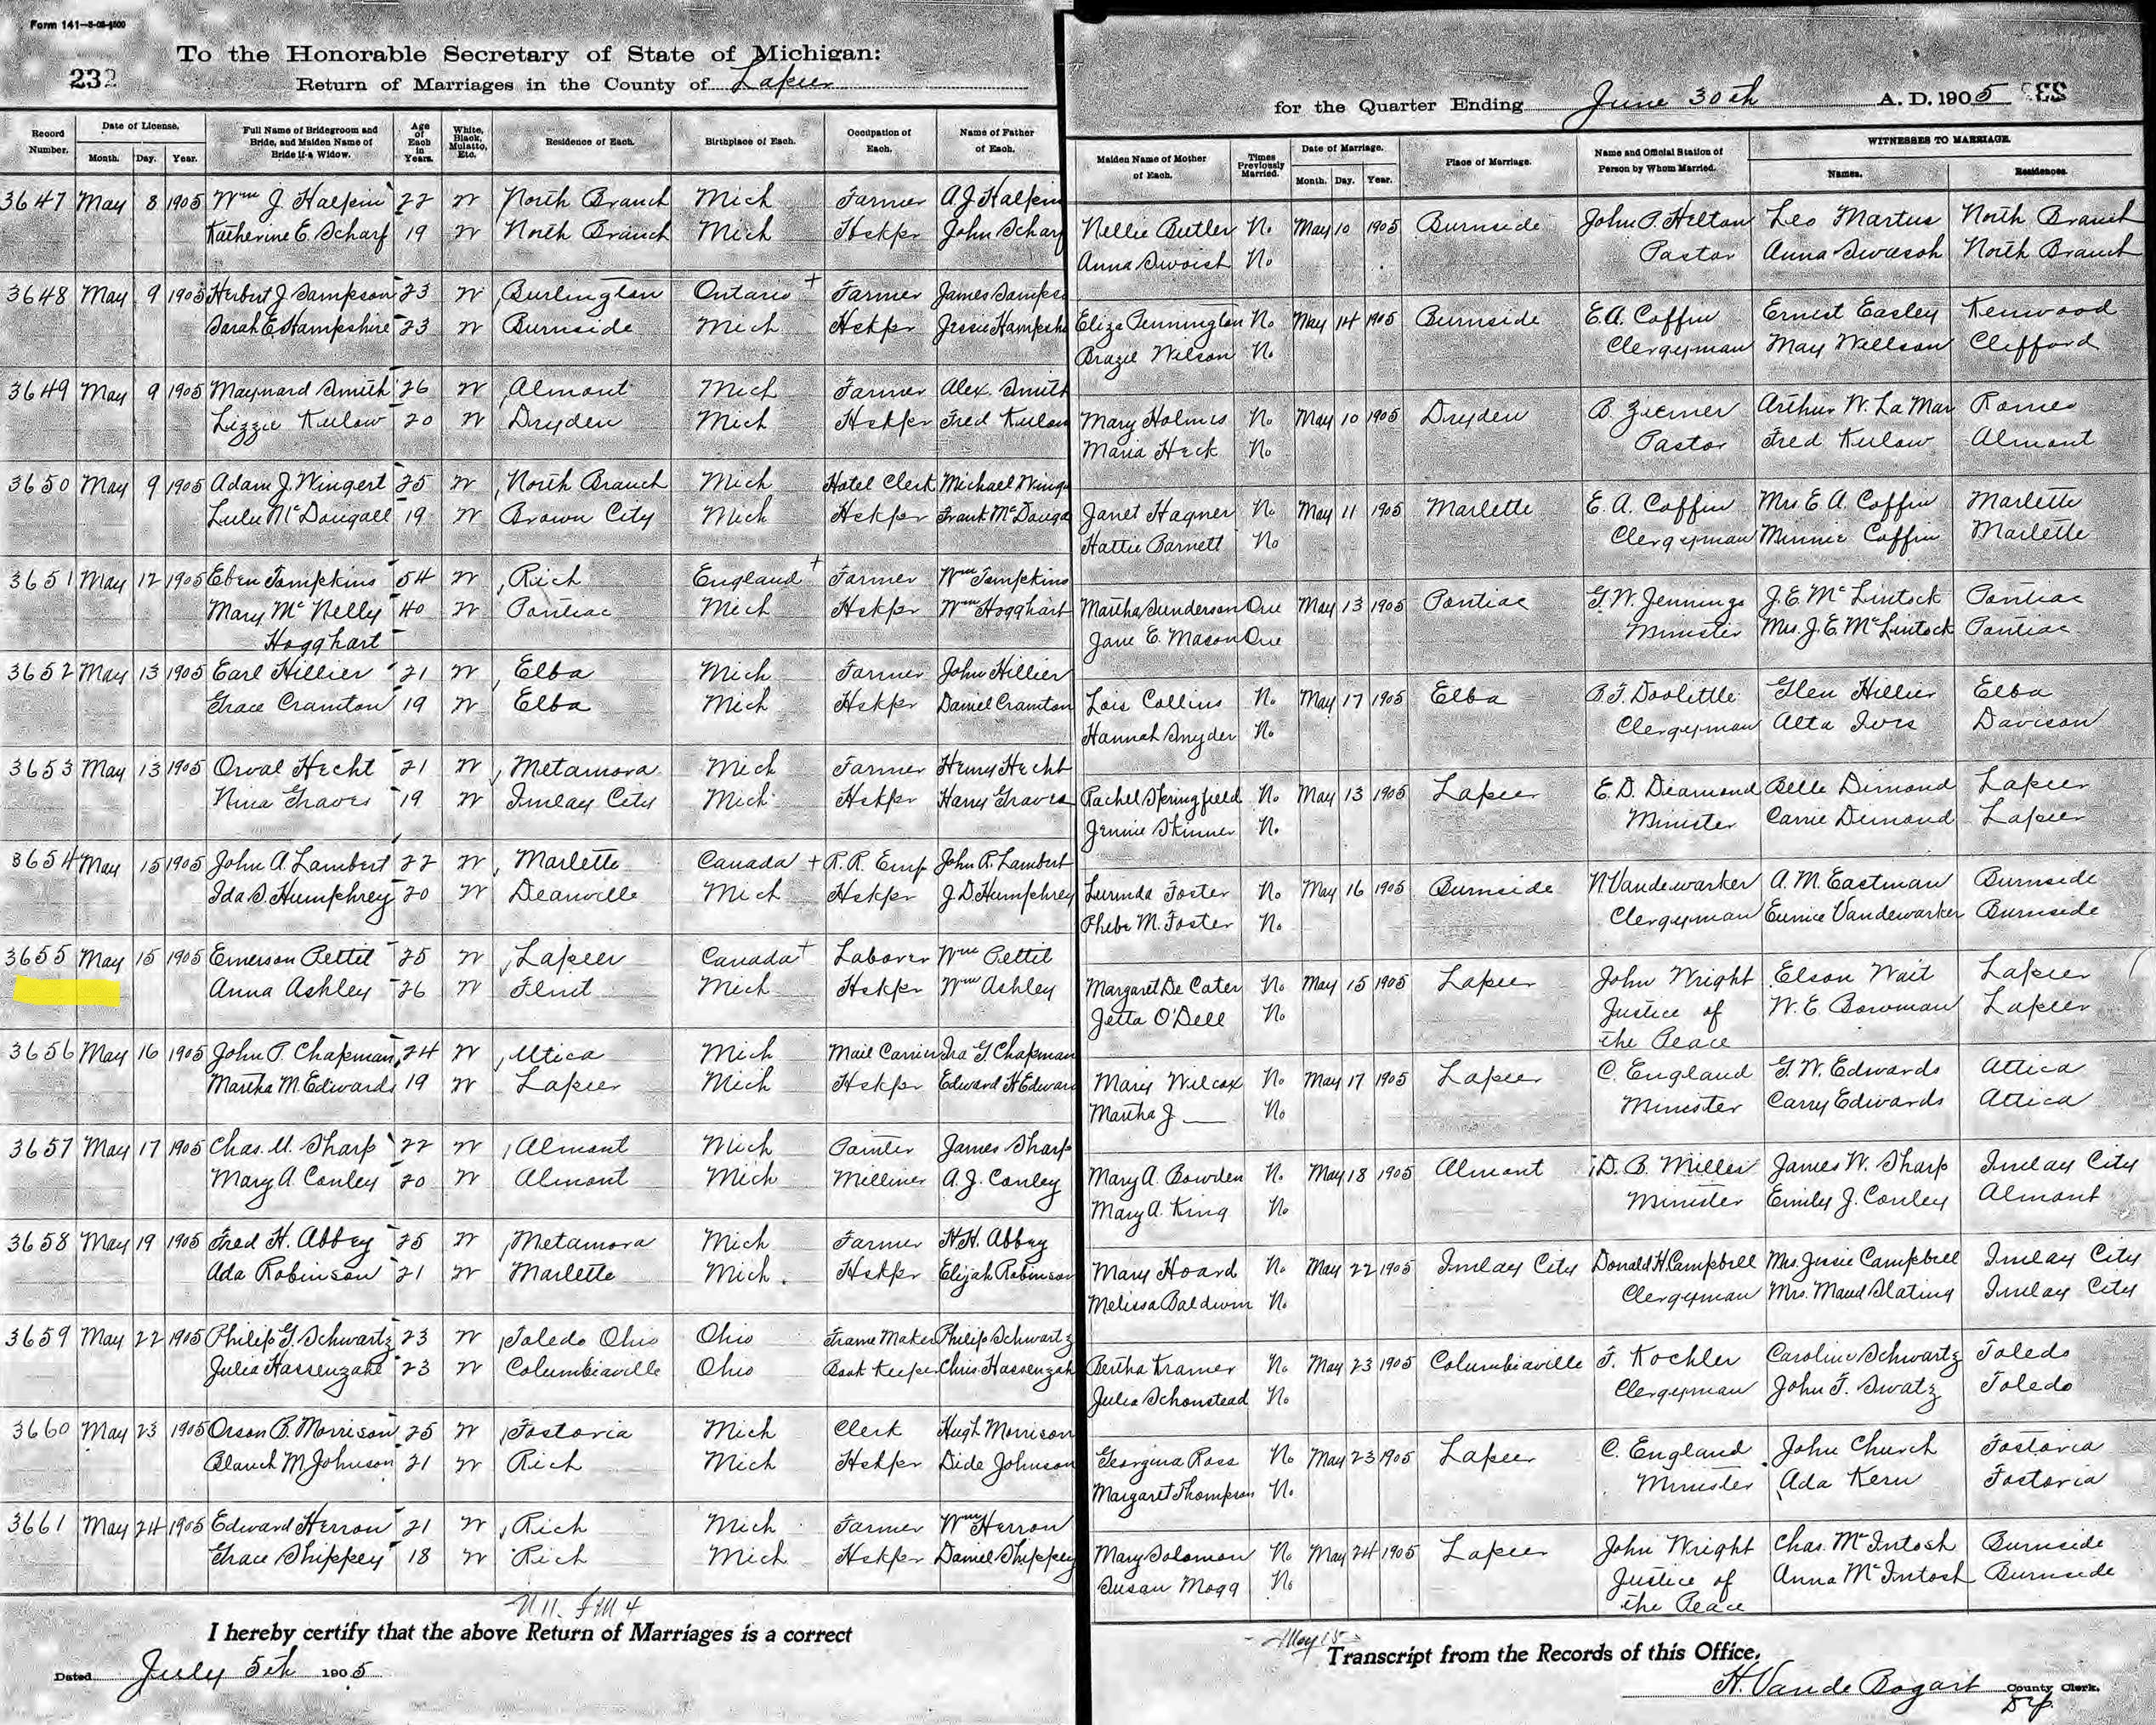 Form 141—5-05-4500
To the Honorable Secretary of State of Michigan:
232
Return of Marriages in the County of Lapeer
for the Quarter Ending June 30th A. D. 1905 232
Record Number. Date of License. Month. Day. Year. Full Name of Bridegroom and Bride, and Maiden Name of Bride if a Widow. Age of Each in Years. White, Black, Mulatto, Etc. Residence of Each. Birthplace of Each. Occupation of Each. Name of Father of Each. Maiden Name of Mother of Each. Times Previously Married. Date of Marriage. Month. Day. Year. Place of Marriage. Name and Official Station of Person by Whom Married. WITNESSES TO MARRIAGE. Names. Residences.
3647 May 8 1905 Wm J Halpin 22 W North Branch Mich Farmer A. J. Halpin Nellie Butler No May 10 1905 Burnside John P. Hilton Leo Martus North Branch
Katherine E. Scharf 19 W North Branch Mich Hskpr John Scharf Anna Swoish No Pastor Anna Swasoh North Branch
3648 May 9 1905 Herbert J Sampson 23 W Burlington Ontario + Farmer James Sampso Eliza Pennington No May 14 1905 Burnside E. A. Coffin Ernest Easley Kenwood
Sarah E. Hampshire 23 W Burnside Mich Hskpr Jessie Hampshi Brazil Wilson No Clergyman May Willson Clifford
3649 May 9 1905 Maynard Smith 26 W Almont Mich Farmer Alex. Smith Mary Holmes No May 10 1905 Dryden B. Ziemer Arthur W. La Mar Romeo
Lizzie Kulow 20 W Dryden Mich Hskpr Fred Kulow Maria Heck No Pastor Fred Kulow Almont
3650 May 9 1905 Adam J. Wingert 25 W North Branch Mich Hotel Clerk Michael Winge Janet Hagner No May 11 1905 Marlette E. A. Coffin Mrs E. A. Coffin Marlette
Lulu McDougall 19 W Brown City Mich Hskpr Frank McDouga Hattie Barnett No Clergyman Minnie Coffin Marlette
3651 May 12 1905 Eben Tompkins 54 W Rich England + Farmer Wm Tompkins Martha Sunderson One May 13 1905 Pontiac G. W. Jennings J. E. McLintock Pontiac
Mary McNelly 40 W Pontiac Mich Hskpr Wm Hogghart Jane E. Mason One Minister Mrs. J. E. McLintock Pontiac
Hogghart
3652 May 13 1905 Earl Hillier 21 W Elba Mich Farmer John Hillier Lois Collins No May 17 1905 Elba B. F. Doolittle Glen Hillier Elba
Grace Cramton 19 W Elba Mich Hskpr Daniel Cramton Hannah Snyder No Clergyman Alta Ivrs Davison
3653 May 13 1905 Orval Hecht 21 W Metamora Mich Farmer Henry Hecht Rachel Springfield No May 13 1905 Lapeer E. D. Diamond Belle Dimond Lapeer
Nina Graves 19 W Imlay City Mich Hskpr Harry Graves Jennie Skinner No Minister Carrie Demond Lapeer
3654 May 15 1905 John A. Lambert 22 W Marlette Canada + R. R. Emp John R. Lambert Lurinda Foster No May 16 1905 Burnside N Vandewarker A. M. Eastman Burnside
Ida S. Humphrey 20 W Deanville Mich Hskpr J. D. Humphrey Phebe M. Foster No Clergyman Eunice Vandewarker Burnside
3655 May 15 1905 Emerson Pettit 25 W Lapeer Canada + Laborer Wm Pettit Margaret De Cater No May 15 1905 Lapeer John Wright Elson Wait Lapeer
Anna Ashley 26 W Flint Mich Hskpr Wm Ashley Jetta O'Dell No Justice of W. E. Bowman Lapeer
the Peace
3656 May 16 1905 John P. Chapman 24 W Utica Mich Mail Carrier Ira G Chapman Mary Wilcox No May 17 1905 Lapeer C. England G. W. Edwards Attica
Martha M. Edwards 19 W Lapeer Mich Hskpr Edward H Edward Martha J — No Minister Carry Edwards Attica
3657 May 17 1905 Chas. U. Sharp 22 W Almont Mich Painter James Sharp Mary A. Bowden No May 18 1905 Almont D. B. Miller James W. Sharp Imlay City
Mary A Conley 20 W Almont Mich Milliner A. J. Conley Mary A. King No Minister Emily J. Conley Almont
3658 May 19 1905 Fred H. Abbey 25 W Metamora Mich Farmer H. H. Abbey Mary Hoard No May 22 1905 Imlay City Donald H. Campbell Mrs. Jessie Campbell Imlay City
Ada Robinson 21 W Marlette Mich. Hskpr Elijah Robinson Melissa Baldwin No Clergyman Mrs. Maud Slating Imlay City
3659 May 22 1905 Philip G. Schwartz 23 W Toledo Ohio Ohio Frame Maker Philip Schwartz Bertha Kramer No May 23 1905 Columbiaville F. Kochler Caroline Schwartz Toledo
Julia Hassenzahl 23 W Columbiaville Ohio Book Keeper Chris Hassenzah Julia Schonstead No Clergyman John F. Swatz Toledo
3660 May 23 1905 Orson B. Morrison 25 W Fostoria Mich Clerk Hugh Morrison Georgina Ross No May 23 1905 Lapeer C. England John Church Fostoria
Blanch M Johnson 21 W Rich Mich Hskpr Dide Johnson Margaret Thompson No Minister Ada Kern Fostoria
3661 May 24 1905 Edward Herron 21 W Rich Mich Farmer Wm Herron Mary Solomon No May 24 1905 Lapeer John Wright Chas. McIntosh Burnside
Grace Shippey 18 W Rich Mich Hskpr Daniel Shippey Susan Mogg No Justice of Anna McIntosh Burnside
the Peace
I hereby certify that the above Return of Marriages is a correct Transcript from the Records of this Office.
May 15
Dated July 5th 1905
H. Vande Bogart County Clerk.